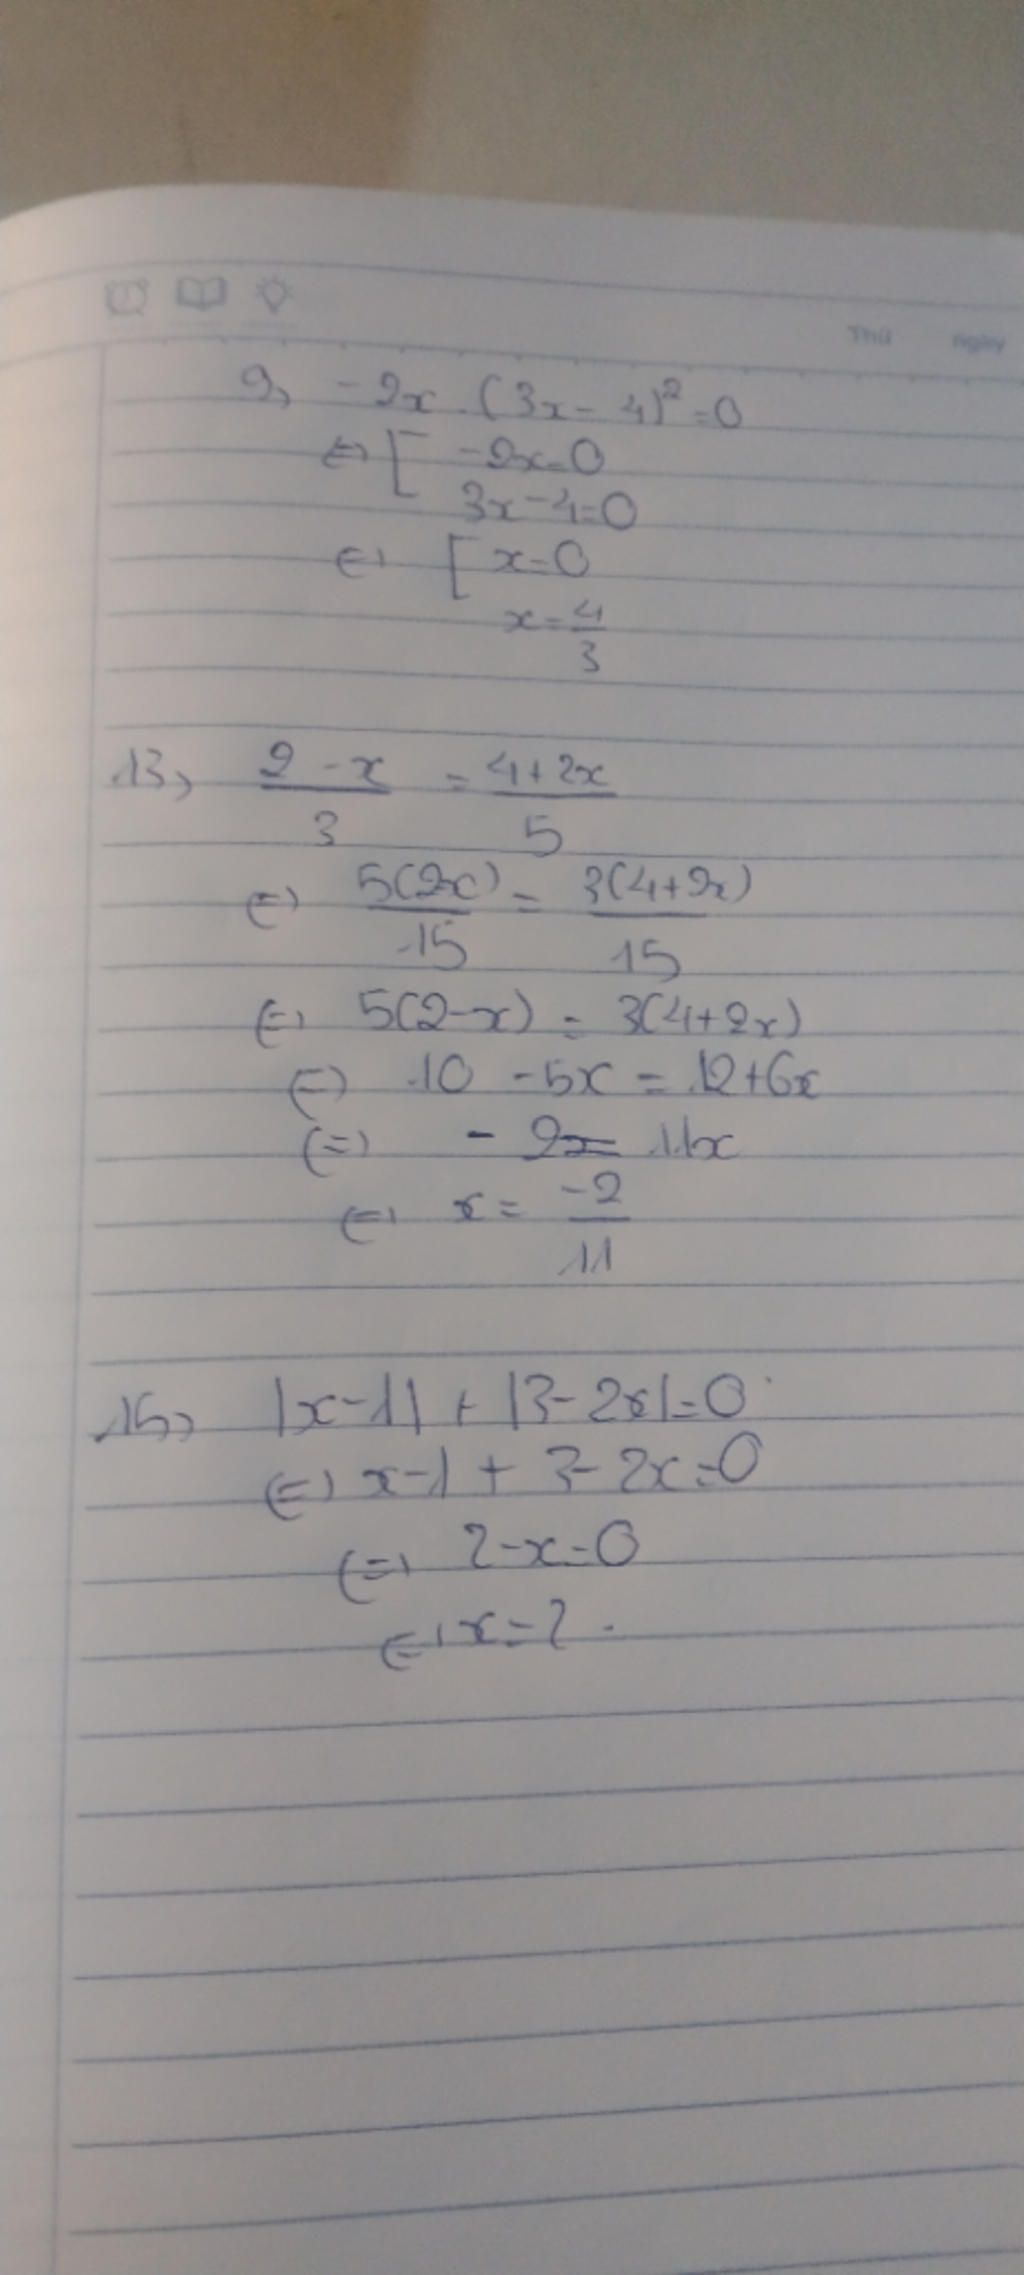 Thứ ngày
9, -2x . (3x - 4)² = 0
⇔ [ -2x = 0
3x - 4 = 0
⇔ [ x = 0
x = 4/3
13, (2 - x)/3 = (4 + 2x)/5
⇔ 5(2x)/15 = 3(4 + 2x)/15
⇔ 5(2 - x) = 3(4 + 2x)
⇔ 10 - 5x = 12 + 6x
⇔ - 2 = 11x
⇔ x = -2/11
15, |x - 1| + |3 - 2x| = 0
⇔ x - 1 + 3 - 2x = 0
⇔ 2 - x = 0
⇔ x = 2 .